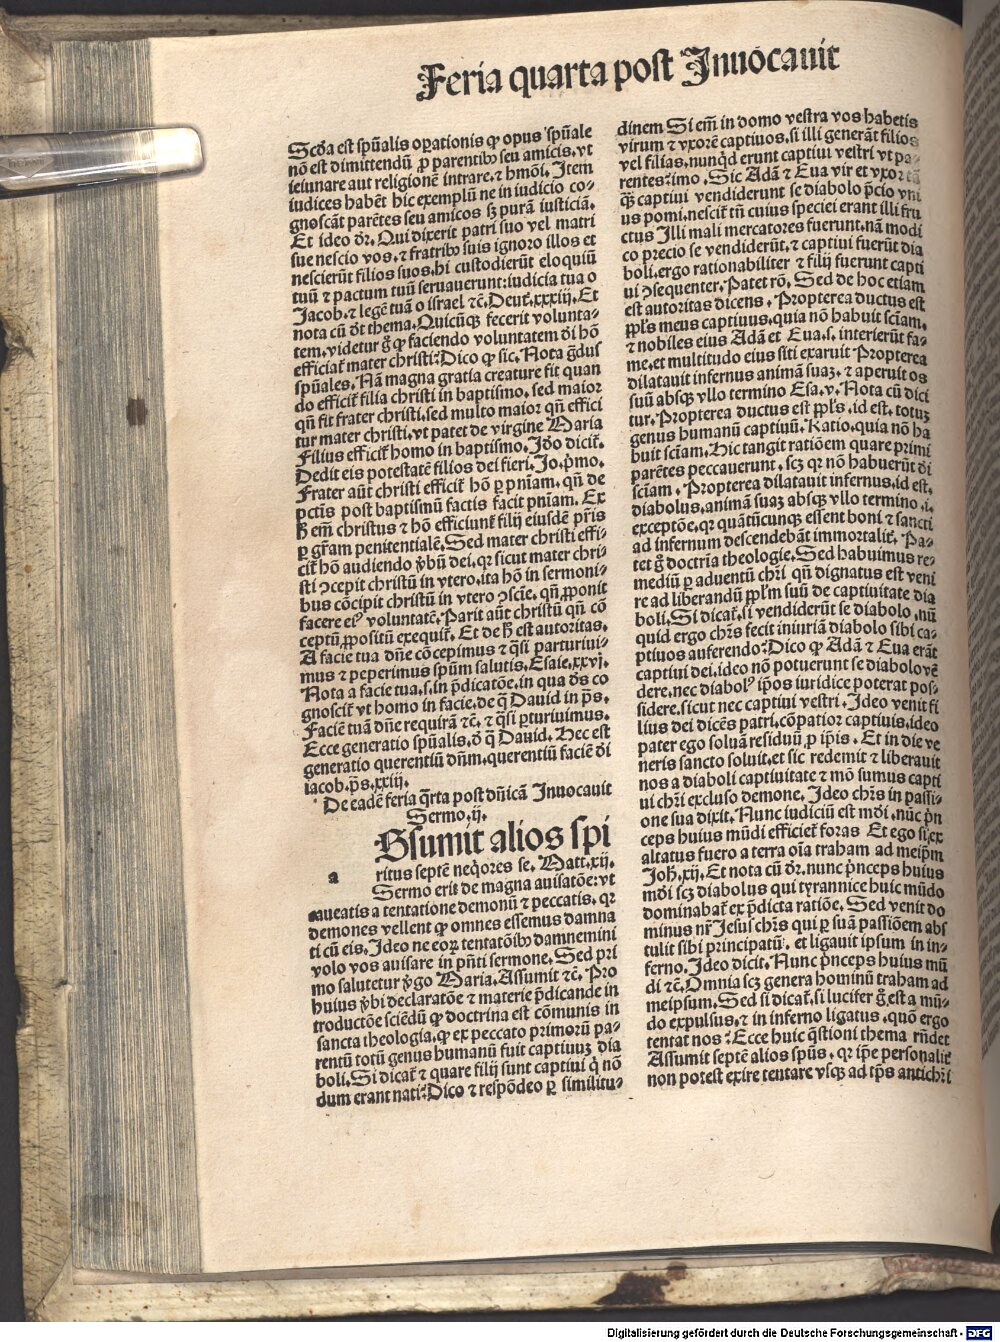 Feria quarta post Inuocauit
Scďa est spũalis oꝑationis ꝙ opus spũale
nõ est dimittendũ ꝓ parentibꝰ seu amicis, vt
ieiunare aut religionẽ intrare, ⁊ hmõi. Item
iudices habẽt hic exemplũ ne in iudicio co⸗
gnoscãt parẽtes seu amicos sꝫ purã iusticiã.
Et ideo dr̃. Qui dixerit patri suo vel matri
sue nescio vos, ⁊ fratribꝰ suis ignoro illos et
nescierũt filios suos, hi custodierũt eloquiũ
tuũ ⁊ pactum tuũ seruauerunt: iudicia tua o
Jacob, ⁊ legẽ tuã o israel ⁊c̃. Deut. xxxiij. Et
nota cũ dt̃ thema. Quicũqꝫ fecerit volunta⸗
tem, videtur g̊ ꝙ faciendo voluntatem dĩ hõ
efficiat̃ mater christi: Dico ꝙ sic. Nota g̃dus
spũales. Nã magna gratia creature fit quan
do effici㝫 filia christi in baptismo, sed maior
qñ fit frater christi, sed multo maior qñ effici
tur mater christi, vt patet de virgine Maria
Filius efficit̃ homo in baptismo. Jďo dicit̃.
Dedit eis potestatẽ filios dei fieri. Jo. p̃mo.
Frater aũt christi efficit̃ hõ ꝑ pñiam, qñ de
pctĩs post baptismũ factis facit pñiam. Ex
h̊ em̃ christus ⁊ hõ efficiunt̃ filij eiusdẽ pr̃is
ꝑ gr̃am penitentialẽ. Sed mater christi effi⸗
cit̃ hõ audiendo v̾bũ dei, qꝛ sicut mater chri⸗
sti ꝯcepit christũ in vtero, ita hõ in sermoni⸗
bus cõcipit christũ in vtero ꝯscẽe, qñ ꝓponit
facere eiꝰ voluntatẽ. Parit aũt christũ qñ cõ
ceptũ ꝓpositũ exequit̃. Et de h̊ est autoritas.
A facie tua dñe cõcepimus ⁊ q̃si parturiui⸗
mus ⁊ peperimus spũm salutis. Esaie. xxvj.
Nota a facie tua, s. in p̃dicatõe, in qua de͂s co
gnoscit̃ vt homo in facie, de q̃ Dauid in p̃s.
Faciẽ tuã dñe requirã ⁊c̃. ⁊ q̃si ꝑturiuimus.
Ecce generatio spũalis, ď q̃ Dauid. Hec est
generatio querentiũ dñm, querentiũ faciẽ dĩ
iacob. p̃s. xxiij.
De eadẽ feria q̃rta post dñicã Inuocauit
Sermo. ij.
Assumit alios spi
a ritus septẽ neq̾ores se. Matt. xij.
Sermo erit de magna auisatõe: vt
caueatis a tentatione demonũ ⁊ peccatis, qꝛ
demones vellent ꝙ omnes essemus damna
ti cũ eis. Ideo ne eoꝝ tentatõibꝰ damnemini
volo vos auisare in pñti sermone. Sed pri
mo salutetur v̾go Maria. Assumit ⁊c̃. Pro
huius v̾bi declaratõe ⁊ materie p̃dicande in
troductõe sciẽdũ ꝙ doctrina est cõmunis in
sancta theologia, ꝙ ex peccato primorũ pa⸗
rentũ totũ genus humanũ fuit captiuuꝫ dia
boli. Si dicat̃ ⁊ quare filij sunt captiui q̇ nõ
dum erant nati: Dico ⁊ respõdeo ꝑ similitu⸗
dinem Si em̃ in domo vestra vos habetis
virum ⁊ vxorẽ captiuos, si illi generãt filios
vel filias, nunqͥd erunt captiui vestri vt pa⸗
rentes: imo. Sic Adã ⁊ Eua vir et vxor tã
qꝫ captiui vendiderunt se diabolo p̃cio vni
us pomi, nescit̃ tñ cuius speciei erant illi fru
ctus Illi mali mercatores fuerunt, nã modi
co precio se vendiderũt, ⁊ captiui fuerũt dia
boli, ergo rationabiliter ⁊ filij fuerunt capti
ui ꝯsequenter. Patet rõ. Sed de hoc etiam
est autoritas dicens. Propterea ductus est
ppl̃s meus captiuus, quia nõ habuit scĩam,
⁊ nobiles eius Adã et Eua, s. interierũt fa⸗
me, et multitudo eius siti exaruit Propterea
dilatauit infernus animã suaꝫ, ⁊ aperuit os
suũ absqꝫ vllo termino Esa. v. Nota cũ dici
tur. Propterea ductus est ppl̃s, id est, totuꝫ
genus humanũ captiuũ. Ratio, quia nõ ha
buit scĩam. Hic tangit ratiõem quare primi
parẽtes peccauerunt, scꝫ qꝛ nõ habuerũt dĩ
scĩam. Propterea dilatauit infernus, id est,
diabolus, animã suaꝫ absqꝫ vllo termino, i.
exceptõe, qꝛ quãtũcunqꝫ essent boni ⁊ sancti
ad infernum descendebãt immortalit̃. Pa⸗
tet g̊ doctrĩa theologie. Sed habuimus re⸗
mediũ ꝑ aduentũ chr̃i qñ dignatus est veni
re ad liberandũ ppl̃m suũ de captiuitate dia
boli. Si dicat̃, si vendiderũt se diabolo, nũ
quid ergo chr̃s fecit iniuriã diabolo sibi ca⸗
ptiuos auferendo: Dico ꝙ Adã ⁊ Eua erãt
captiui dei, ideo nõ potuerunt se diabolo vẽ
dere, nec diabolꝰ ip̃os iuridice poterat pos⸗
sidere, sicut nec captiui vestri. Ideo venit fi
lius dei dicẽs patri, cõpatior captiuis, ideo
pater ego soluã residuũ ꝓ ip̃is. Et in die ve
neris sancto soluit, et sic redemit ⁊ liberauit
nos a diaboli captiuitate ⁊ mõ sumus capti
ui chr̃i excluso demone. Ideo chr̃s in passi⸗
one sua dixit. Nunc iudiciũ est mũdi, nũc p̃n
ceps huius mũdi efficiet̃ foras Et ego si ex
altatus fuero a terra oĩa traham ad meip̃m
Joh̃. xij. Et nota cũ dr̃, nunc p̃nceps huius
mũdi scꝫ diabolus qui tyrannice huic mũdo
dominabat̃ ex p̃dicta ratiõe. Sed venit do
minus nr̃ Jesus chr̃s qui ꝑ suã passiõem abs
tulit sibi principatũ, et ligauit ipsum in in⸗
ferno. Ideo dicit. Nunc p̃nceps huius mũ
di ⁊c̃. Omnia scꝫ genera hominũ traham ad
meipsum. Sed si dicat̃, si lucifer g̊ est a mũ⸗
do expulsus, ⁊ in inferno ligatus, quõ ergo
tentat nos: Ecce huic q̃stioni thema rñdet
Assumit septẽ alios spũs, qꝛ ip̃e personalit̃
non potest exire tentare vsqꝫ ad tp̃s antichr̃i
Digitalisierung gefördert durch die Deutsche Forschungsgemeinschaft - DFG